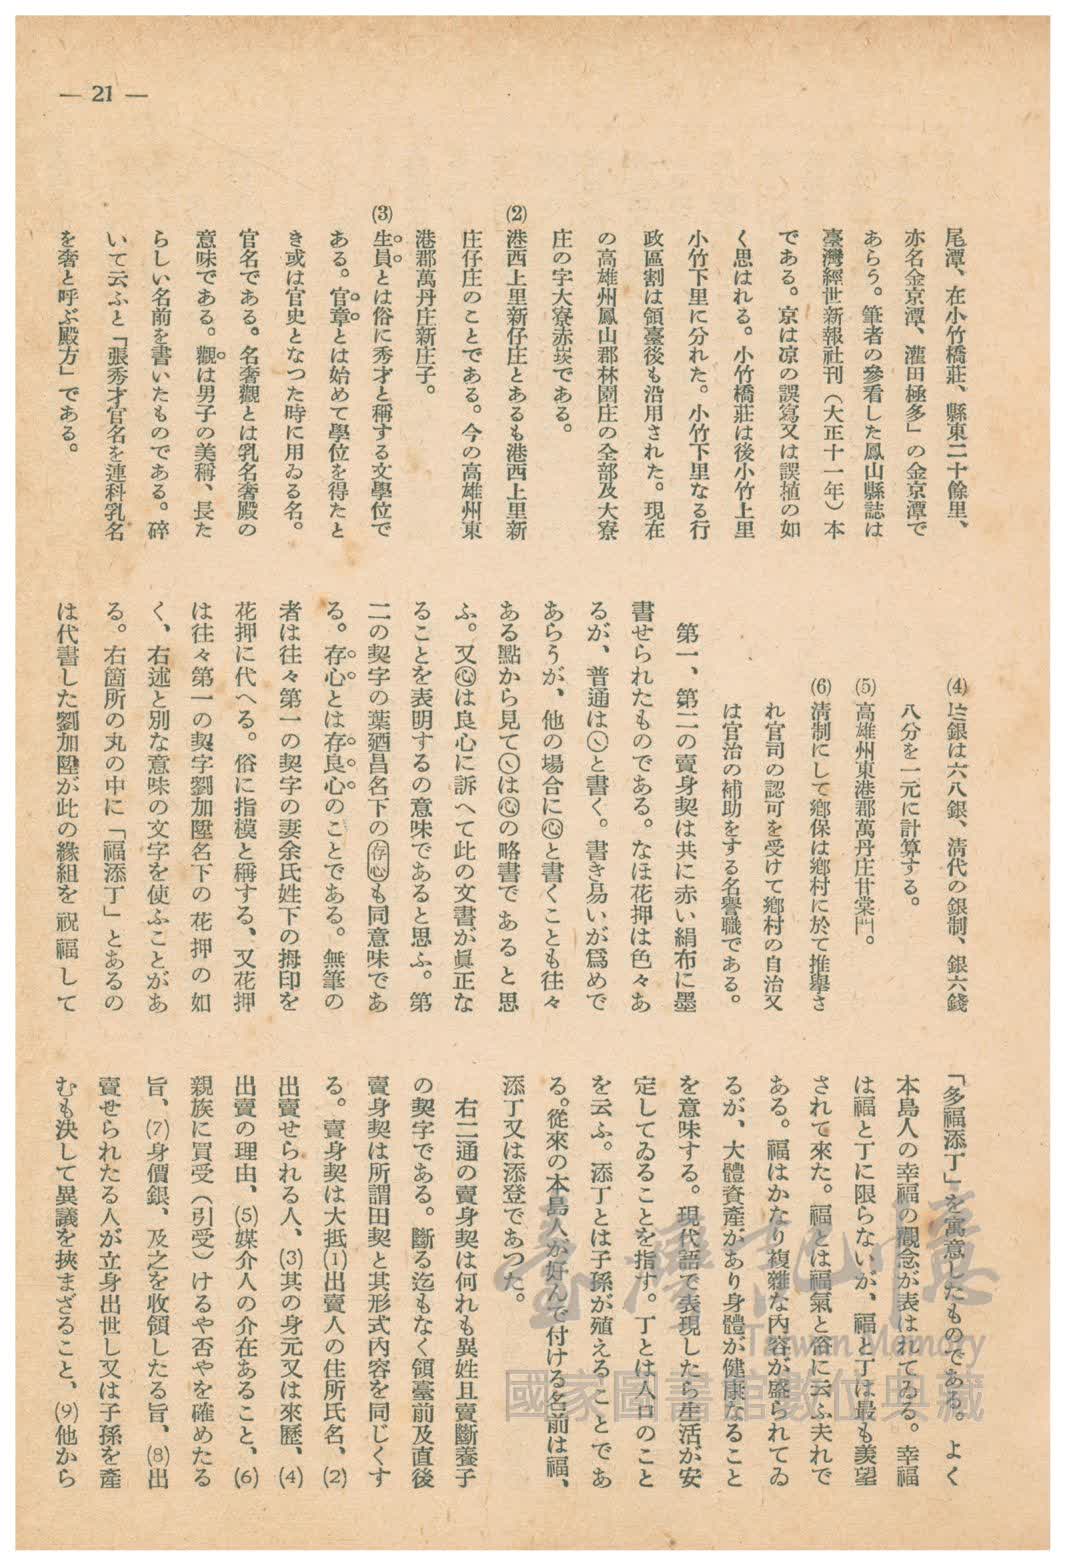 — 21 —
尾潭、在小竹橋莊、縣東二十餘里、
亦名金京潭、灌田極多」の金京潭で
あらう。筆者の參看した鳳山縣誌は
臺灣經世新報社刊（大正十一年）本
である。京は凉の誤寫又は誤植の如
く思はれる。小竹橋莊は後小竹上里
小竹下里に分れた。小竹下里なる行
政區割は領臺後も沿用された。現在
の高雄州鳳山郡林園庄の全部及大寮
庄の字大寮赤崁である。
(2)港西上里新仔庄とあるも港西上里新
庄仔庄のことである。今の高雄州東
港郡萬丹庄新庄子。
(3)生員とは俗に秀才と稱する文學位で
ある。官章とは始めて學位を得たと
き或は官吏となつた時に用ゐる名。
官名である。名奢觀とは乳名奢殿の
意味である。觀は男子の美稱、長た
らしい名前を書いたものである。碎
いて云ふと「張秀才官名を連科乳名
を奢と呼ぶ殿方」である。
(4)銀は六八銀、清代の銀制、銀六錢
八分を一元に計算する。
(5)高雄州東港郡萬丹庄甘棠門。
(6)清制にして鄉保は鄉村に於て推擧さ
れ官司の認可を受けて鄉村の自治又
は官治の補助をする名譽職である。
第一、第二の賣身契は共に赤い絹布に墨
書せられたものである。なほ花押は色々あ
るが、普通は㊀と書く。書き易いが爲めで
あらうが、他の場合に㊀と書くことも往々
ある點から見ては㊀の略書であると思
ふ。又㊀は良心に訴へて此の文書が眞正な
ることを表明するの意味であると思ふ。第
二の契字の葉廼昌名下の存心も同意味であ
る。存心とは存良心のことである。無筆の
者は往々第一の契字の妻余氏姓下の拇印を
花押に代へる。俗に指模と稱する、又花押
は往々第一の契字劉加陞名下の花押の如
く、右述と別な意味の文字を使ふことがあ
る。右箇所の丸の中に「福添丁」とあるの
は代書した劉加陞が此の緣組を祝福して
「多福添丁」を寓意したものである。よく
本島人の幸福の觀念が表はれてゐる。幸福
は福と丁に限らないが、福と丁は最も羨望
されて來た。福とは福氣と俗に云ふ夫れで
ある。福はかなり複雜な内容が盛られてゐ
るが、大體資產があり身體が健康なること
を意味する。現代語で表現したら生活が安
定してゐることを指す。丁とは人口のこと
を云ふ。添丁とは子孫が殖えることであ
る。從來の本島人が好んで付ける名前は福、
添丁又は添登であつた。
右二通の賣身契は何れも異姓且賣斷養子
の契字である。斷る迄もなく領臺前及直後
賣身契は所謂田契と其形式内容を同じくす
る。賣身契は大抵(1)出賣人の住所氏名、(2)
出賣せられる人、(3)其の身元又は來歷、(4)
出賣の理由、(5)媒介人の介在あること、(6)
親族に買受（引受）けるや否やを確めたる
旨、(7)身價銀、及之を收領したる旨、(8)出
賣せられたる人が立身出世し又は子孫を產
むも決して異議を挾まざること、(9)他から
臺灣記憶
Taiwan Memory
國家圖書館數位典藏